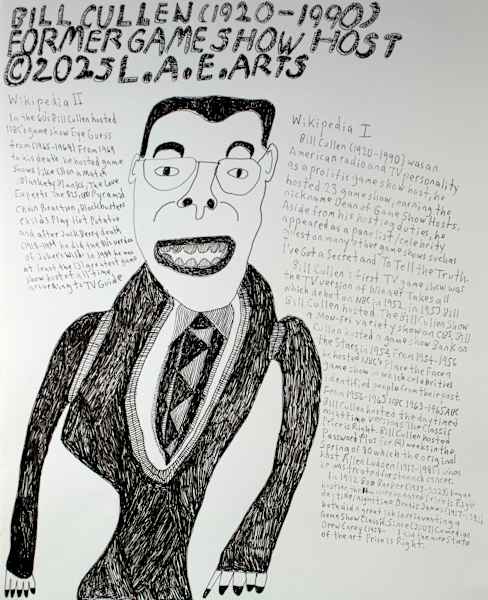 BILL CULLEN (1920-1990)
FORMER GAME SHOW HOST
©2025 L.A.E. ARTS
Wikipedia II
In the 60s Bill Cullen hosted
NBC's game show Eye Guess
from (1965-1969) From 1969
to his death he hosted game
shows like Chain
Blankety Blanks, The Love
Experts The Pyramid
Chain Reaction, Blockbusters
Child's Play Hot Potato
and after Jack Berry death
he did the
of Joker's Wild. In he was
at least the game
show host of all time,
according to TV Guide
Wikipedia I
Bill Cullen (1920-1990) was an
American radio and TV personality
as a prolific game show host. he
hosted 23 game show, earning the
nickname Dean of Game Show Hosts.
Aside from his hosting duties, he
appeared as a panelist/celebrity
guest on many other game shows such as
I've Got a Secret and To Tell the Truth.
Bill Cullen's first TV game show was
the TV version of Winner Takes all
which debut on in 1952. in 1953 Bill
Bill Cullen hosted The Bill Cullen Show
a variety show on CBS. Bill
Cullen hosted a game show Bank on
The Stars in 1954. From 1954-1956
he hosted NBC's Place the Face a
Game show in which celebrities
identified people from their past.
From 1956-1963 NBC 1963-1965 ABC
Bill Cullen hosted the daytime &
nighttime versions the classic
Price is Right. Bill Cullen hosted
Password Plus for (4) weeks in the
Spring of 80 which the original
host Allen Ludden (1917-1981) was
cancer.
In 1972 Bob Barker (1923-2023) began
hosting the Price is Right
daytime, nighttime Dennis James
both did a great job
Game Show Since (2007) Comedian
Drew Carey (1958- ) did the State
of the art Price is Right.